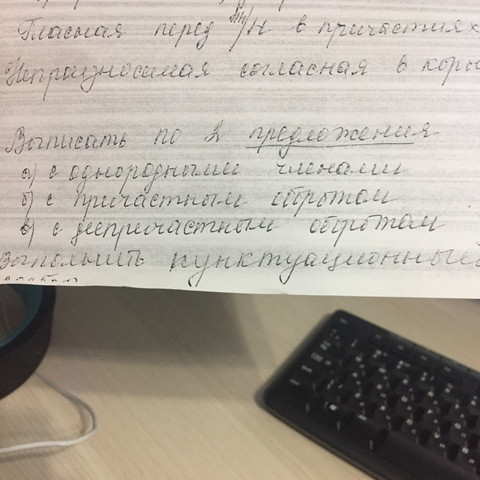 Гласная перед нн/н в причастиях
Непроизносимая согласная в корн
Выписать по 2 предложения
а) с однородными членами
б) с причастным оборотом
в) с деепричастным оборотом
Выполнить пунктуационный